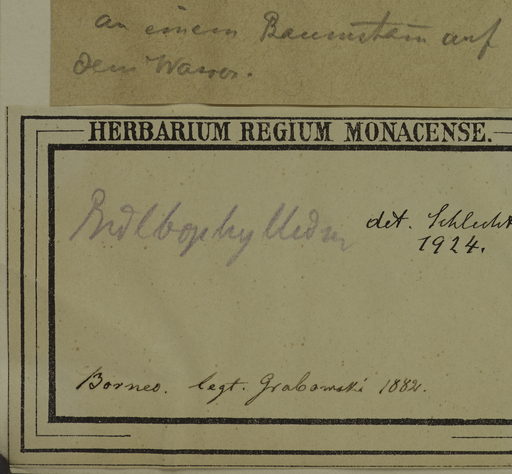 an einem Baumstam auf
dem Wasser.
HERBARIUM REGIUM MONACENSE.
Bulbophyllum
det. Schlecht
1924.
Borneo. legt. Grabowski 1882.